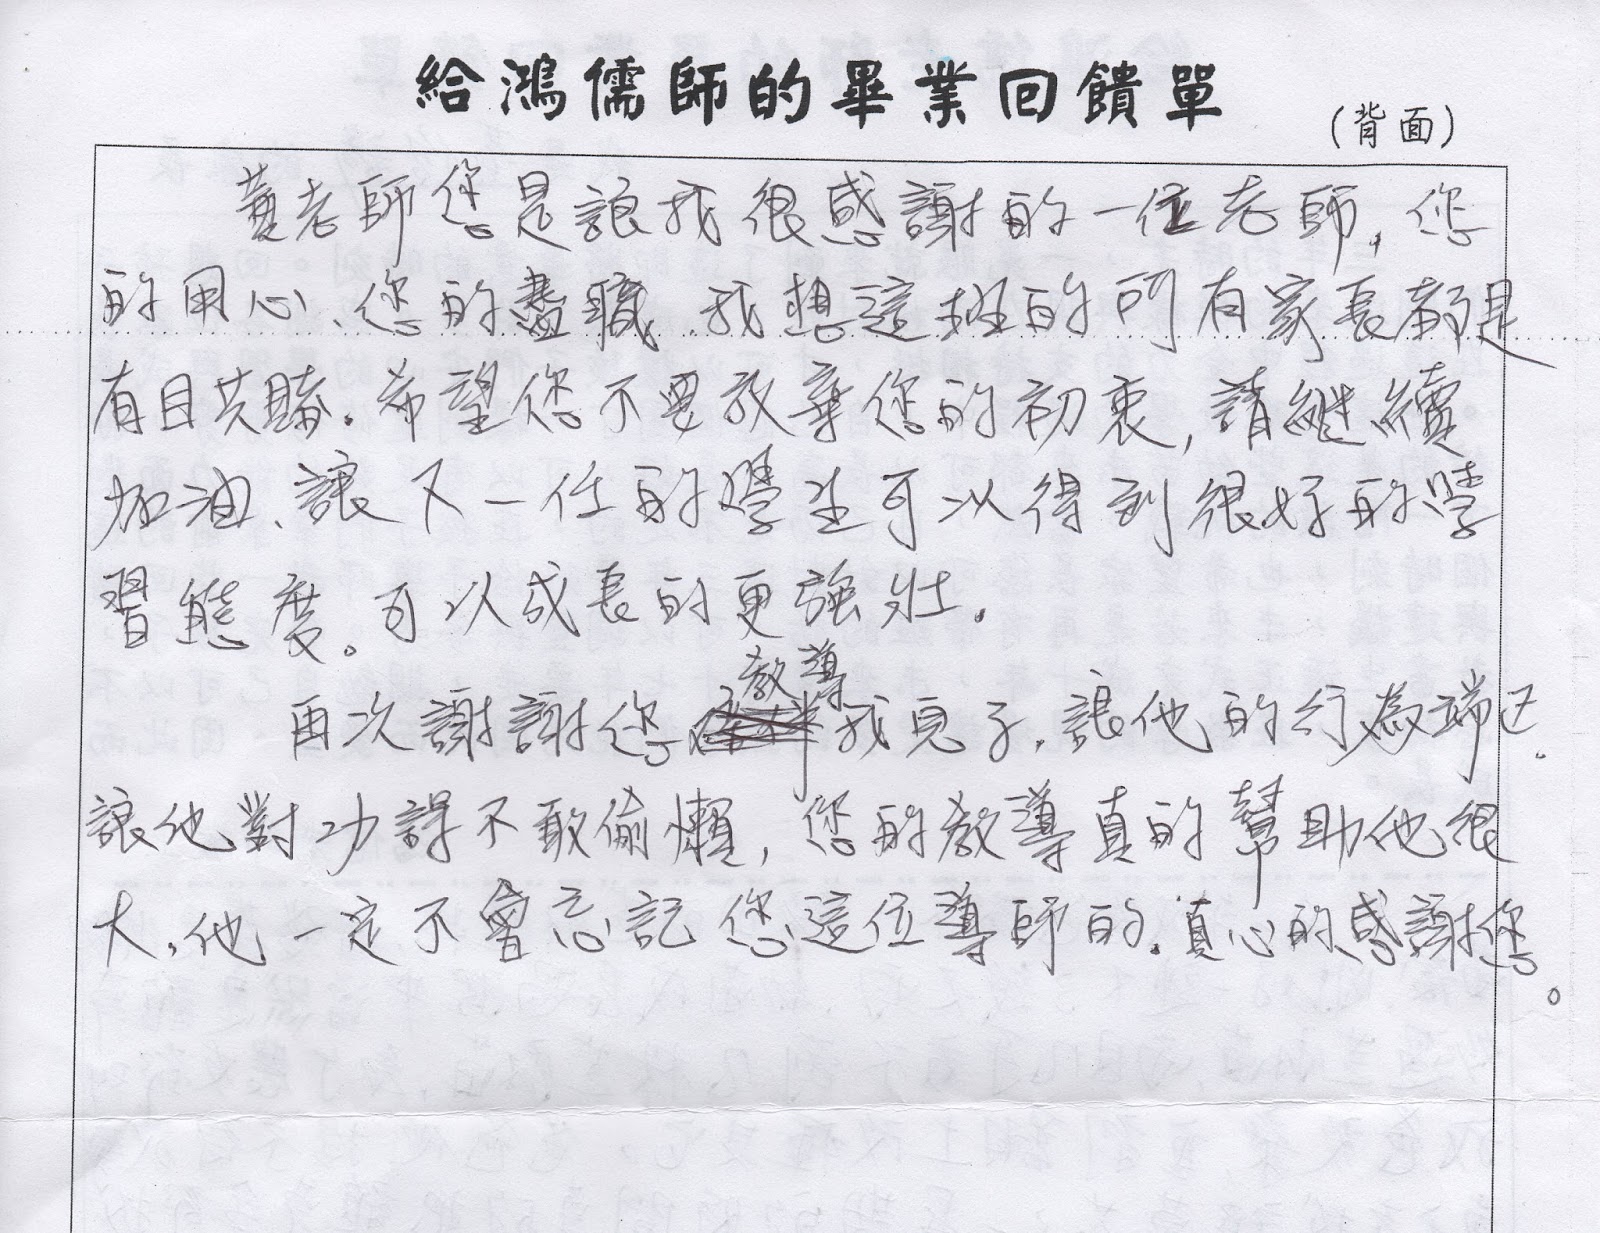 給鴻儒師的畢業回饋單
(背面)
黃老師您是讓我很感謝的一位老師,您
的用心、您的盡職 我想這班的所有家長都是
有目共睹。希望您不要放棄您的初衷,請繼續
加油、讓下一任的學生可以得到很好的學
習態度。可以成長的更強壯。
教導
再次謝謝您 我兒子,讓他的行為端正。
讓他對功課不敢偷懶,您的教導真的幫助他很
大,他一定不會忘記您這位導師的。真心的感謝您。